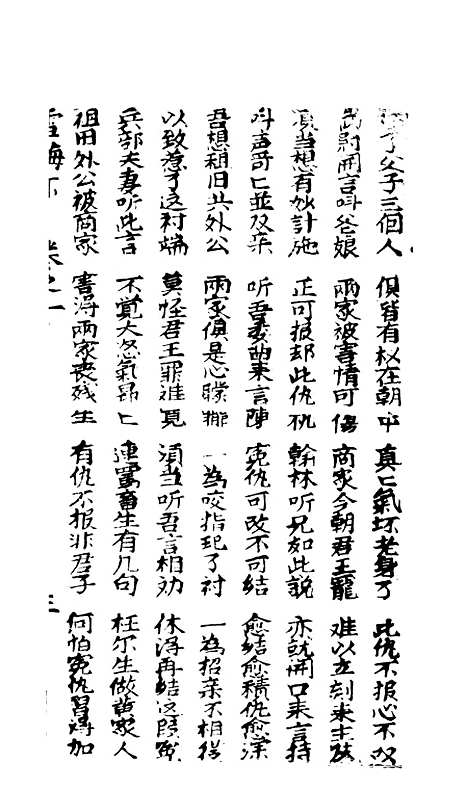 父子三個人 俱皆有权在朝中 真匕氣坏老身了 此仇不报心不
尉開言叫爸娘 兩家被害情可傷 商家今朝君王寵 难以立刻来主
須当想有妙計施 正可报却此仇 翰林听兄如此説 亦就開口来言持
叫声哥匕並双亲 听吾奏来言陳 冤仇可改不可結 愈結愈積仇愈深
吾想祖旧共外公 兩家俱是心 一為咬指犯了 一為招亲不相從
以致惹了这村端 莫怪君王罪誰見 須当听吾言相劝 休得再結这
兵部夫妻听此言 不覺大怒氣昂匕 連罵畜生有几句 枉尔生做黄家人
祖田外公被商家 害得兩家喪残生 有仇不报非君子 何怕冤仇習得加
雪梅 卷之一 三